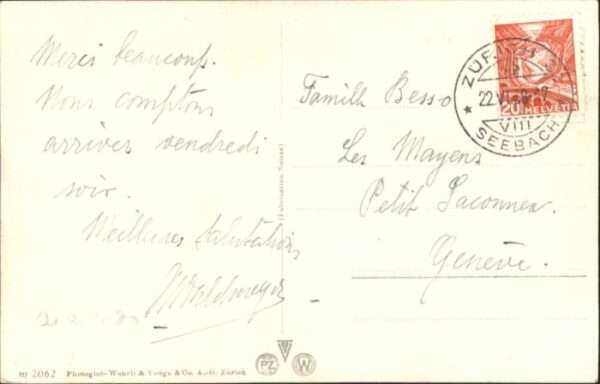 Merci beaucoup.
Nous comptons
arriver vendredi
soir.
Meilleures Salutations
Famille Besso
Les Mayens
Petit Saconnex.
Genève.
ZÜRICH
22.VI
VIII
SEEBACH
20 HELVETIA
m 2062 Photoglob-Wehrli & Vouga & Co. A.-G. Zürich
PZ W